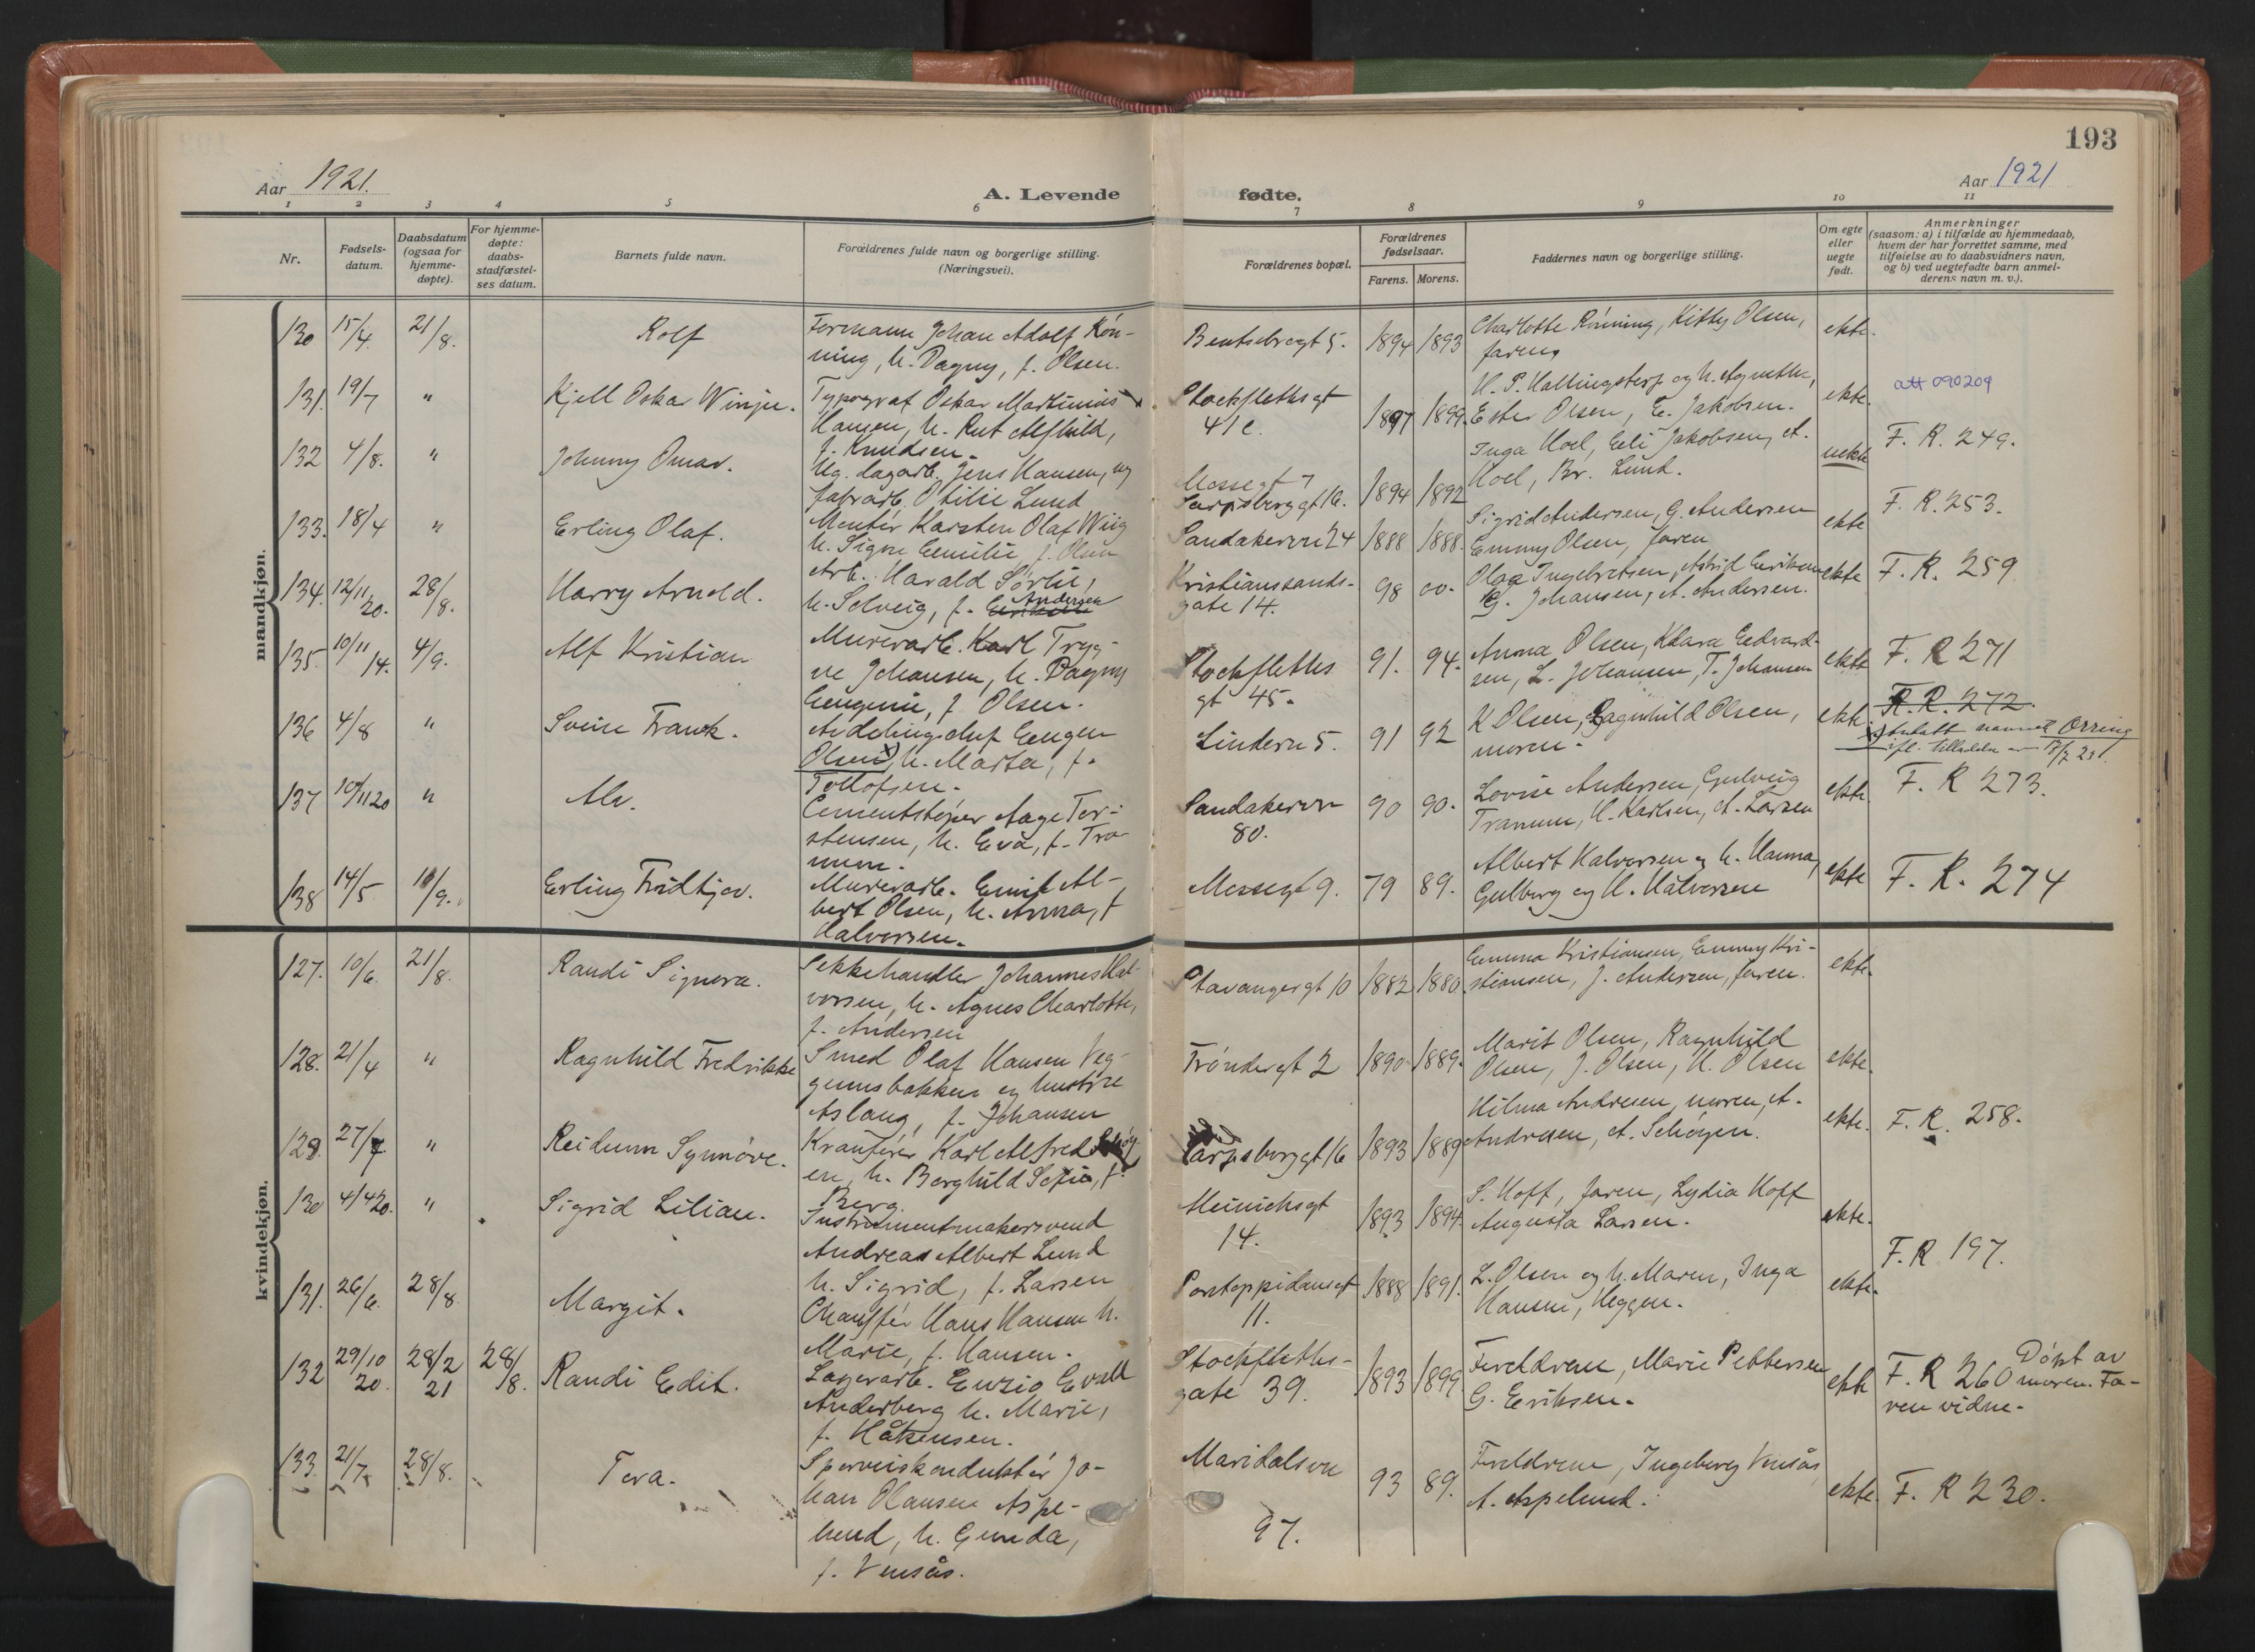 193
Aar 1921.
A. Levende
fødte.
Aar 1921
1 2 3 4 5 6 7 8 9 10 11
Nr.
Fødsels-
datum.
Daabsdatum
(ogsaa for
hjemme-
døpte).
For hjemme-
døpte:
daabs-
stadfæstel-
ses datum.
Barnets fulde navn.
Forældrenes fulde navn og borgerlige stilling.
(Næringsvei).
Forældrenes bopæl.
Forældrenes
fødselsaar.
Farens. Morens.
Faddernes navn og borgerlige stilling.
Om egte
eller
uegte
født.
Anmerkninger
(saasom: a) i tilfælde av hjemmedaab,
hvem der har forrettet samme, med
tilføielse av to daabsvidners navn,
og b) ved uegtefødte barn anmel-
derens navn m. v.).
mandkjøn.
130 15/4. 21/8. Rolf
Formann Johan Adolf Røn-
ning, h. Dagny, f. Olsen.
Bentsebrogt 5. 1894 1893
Charlotte Rönning, Kitty Olsen,
faren,
ekte.
131. 19/7 " Kjell Oskar Winju.
Typograf Oskar Martinius
Hansen, h. Rut Alfhild,
f. Knudsen.
Stockflethsgt
41 c.
1897 1899.
H. P. Hallingstorp og h. Agnethe,
Ester Olsen, E. Jakobsen.
ekte.
att 090209
132 4/8. " Johnny Omar.
Ug. dagarb. Jens Hansen, ug
fabrarb. Otilie Lund
Mossegt 7
Sarpsborggt 16.
1894 1892
Inga Hoel, Eeli Jakobsen, A.
Hoel, Br. Lund.
uekte
F. R. 249.
133. 18/4 " Erling Olaf.
Montör Karsten Olaf Wiig
h. Signe Emilie f. Olsen
Sandakervei 24 1888 1888.
Sigrid Andersen, G. Andersen
Emmy Olsen, faren
ekte
F. R. 253.
134. 12/11 20. 28/8. Harry Arnold.
Arb. Harald Sørlie,
h. Solveig, f. Andersen
Kristianssands-
gate 14.
98 00.
Olga Ingebretsen, Astrid Eeriksen
G. Johansen, A. Andersen.
ekte
F. R. 259
135. 10/11 14. 4/9. Alf Kristian
Murerarb. Karl Tryg-
ve Johansen, h. Dagny
Eugenie, f. Olsen.
Stockfleths
gt 45.
91. 94.
Anna Olsen, Klara Eedvard-
sen, L. Johansen, T. Johansen
ekte
F. R 271
136 4/8 " Svein Frank.
Avdelingschef Eugen
Olsen x), h. Marta, f.
Tollofsen.
Lindern 5. 91 92
K Olsen, Ragnhild Olsen,
moren.
ekte
F. R. 272.
x) Antatt navnet Örring
ifl. tilladelse 17/7 23.
137 10/11 20 " Alv.
Cementstøper Aage Tor-
stensen, h. Eva, f. Tra-
num.
Sandakervn
80.
90 90.
Lovise Andersen, Gulveig
Tranum, H. Karlsen, A. Larsen
ekte.
F. R 273.
138 14/5 11/9. Erling Fridtjov.
Murerarb. Emil Al-
bert Olsen, h. Anna, f
Halvorsen.
Mossegt 9. 79 89.
Albert Halvorsen og h. Hanna,
Gulborg og H. Halvorsen
ekte
F. R. 274
kvindekjøn.
127. 10/6. 21/8. Randi Signora.
Sekkehandler Johannes Hal-
vorsen, h. Agnes Charlotte,
f. Andersen
Stavangergt 10 1882 1880.
Emma Kristiansen, Emmy Kri-
stiansen, J. Andersen, faren.
ekte.
128. 21/4 " Ragnhild Fredrikke
Smed Olaf Hansen Veg-
gumsbakken og hustru
Aslaug, f. Johansen
Tröndergt 2 1890 1889.
Marit Olsen, Ragnhild
Olsen, J. Olsen, H. Olsen
ekte.
129. 27/7. " Reidunn Synnöve.
Kranförer Karl Alfred Schöy-
en, h. Borghild Sofie, f.
Berg
Sarpsborggt 16 1893 1889
Hilma Andresen, moren, A.
Andresen, A. Schöyen.
ekte.
F. R. 258.
130 4/4 20. " Sigrid Lilian.
Instrumentmakersvend
Andreas Albert Lund
h. Sigrid, f. Larsen
Meinichsgt
14.
1893 1894.
S. Hoff, faren, Lydia Hoff
Augusta Larsen.
ekte.
131. 26/6. 28/8 Margit.
Chauffør Hans Hansen h.
Marie, f. Hansen.
Pontoppidansgt
11.
1888 1891.
L. Olsen og h. Maren, Inga
Hansen, Heggen.
ekte.
F. R 197.
132 29/10 20. 28/2 21 28/8. Randi Edit.
Lagerarb. Enzio Evald
Anderberg h. Marie,
f. Håkensen.
Stockfleths-
gate 39.
1893 1899.
Foreldrene, Marie Pettersen
G. Eeriksen.
ekte
F. R 260 Döpt av
moren. Fa-
ren vidne.
133. 21/7. 28/8. Tora.
Sporveiskonduktör Jo-
han Olausen Aspe-
lund, h. Gunda,
f. Vensås.
Maridalsvn
97.
93 89.
Foreldrene, Ingeborg Vensås,
A. Aspelund.
ekte.
F. R 230.